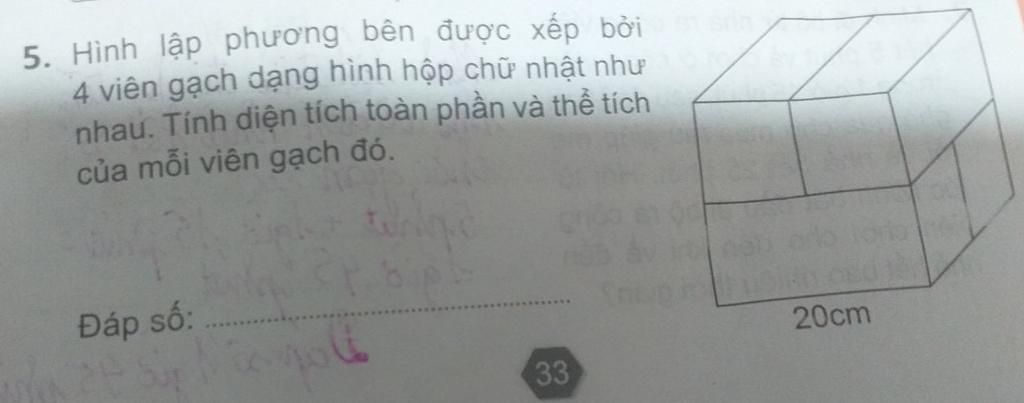 5. Hình lập phương bên được xếp bởi
4 viên gạch dạng hình hộp chữ nhật như
nhau. Tính diện tích toàn phần và thể tích
của mỗi viên gạch đó.
20cm
Đáp số:
33